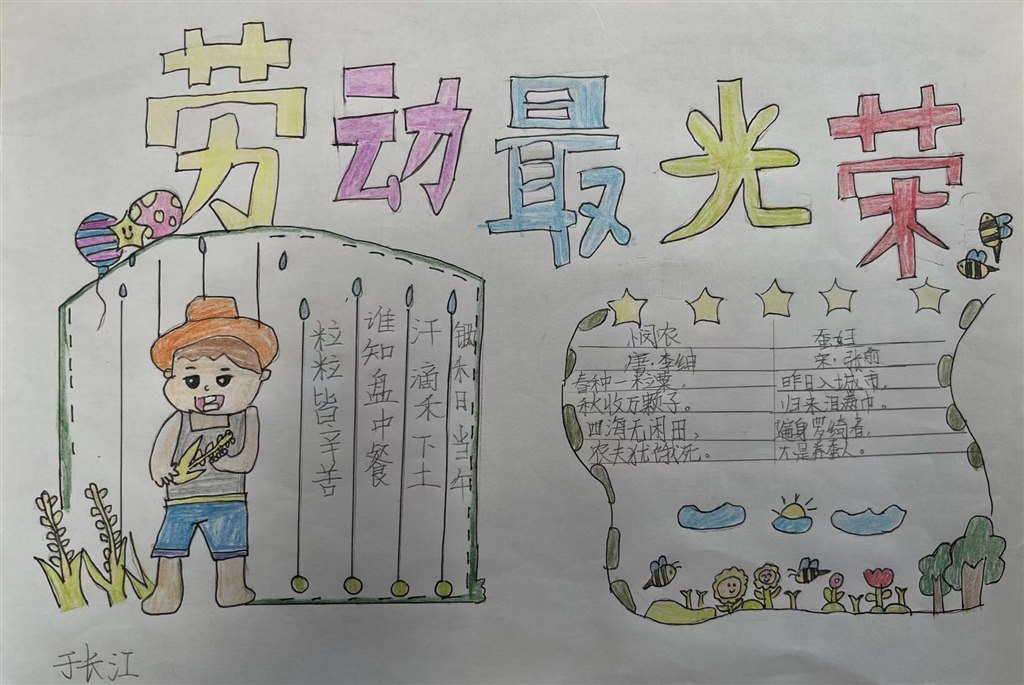 劳动最光荣
锄禾日当午
汗滴禾下土
谁知盘中餐
粒粒皆辛苦
悯农
唐·李绅
春种一粒粟,
秋收万颗子。
四海无闲田,
农夫犹饿死。
蚕妇
宋·张俞
昨日入城市,
归来泪满巾。
遍身罗绮者,
不是养蚕人。
于长江